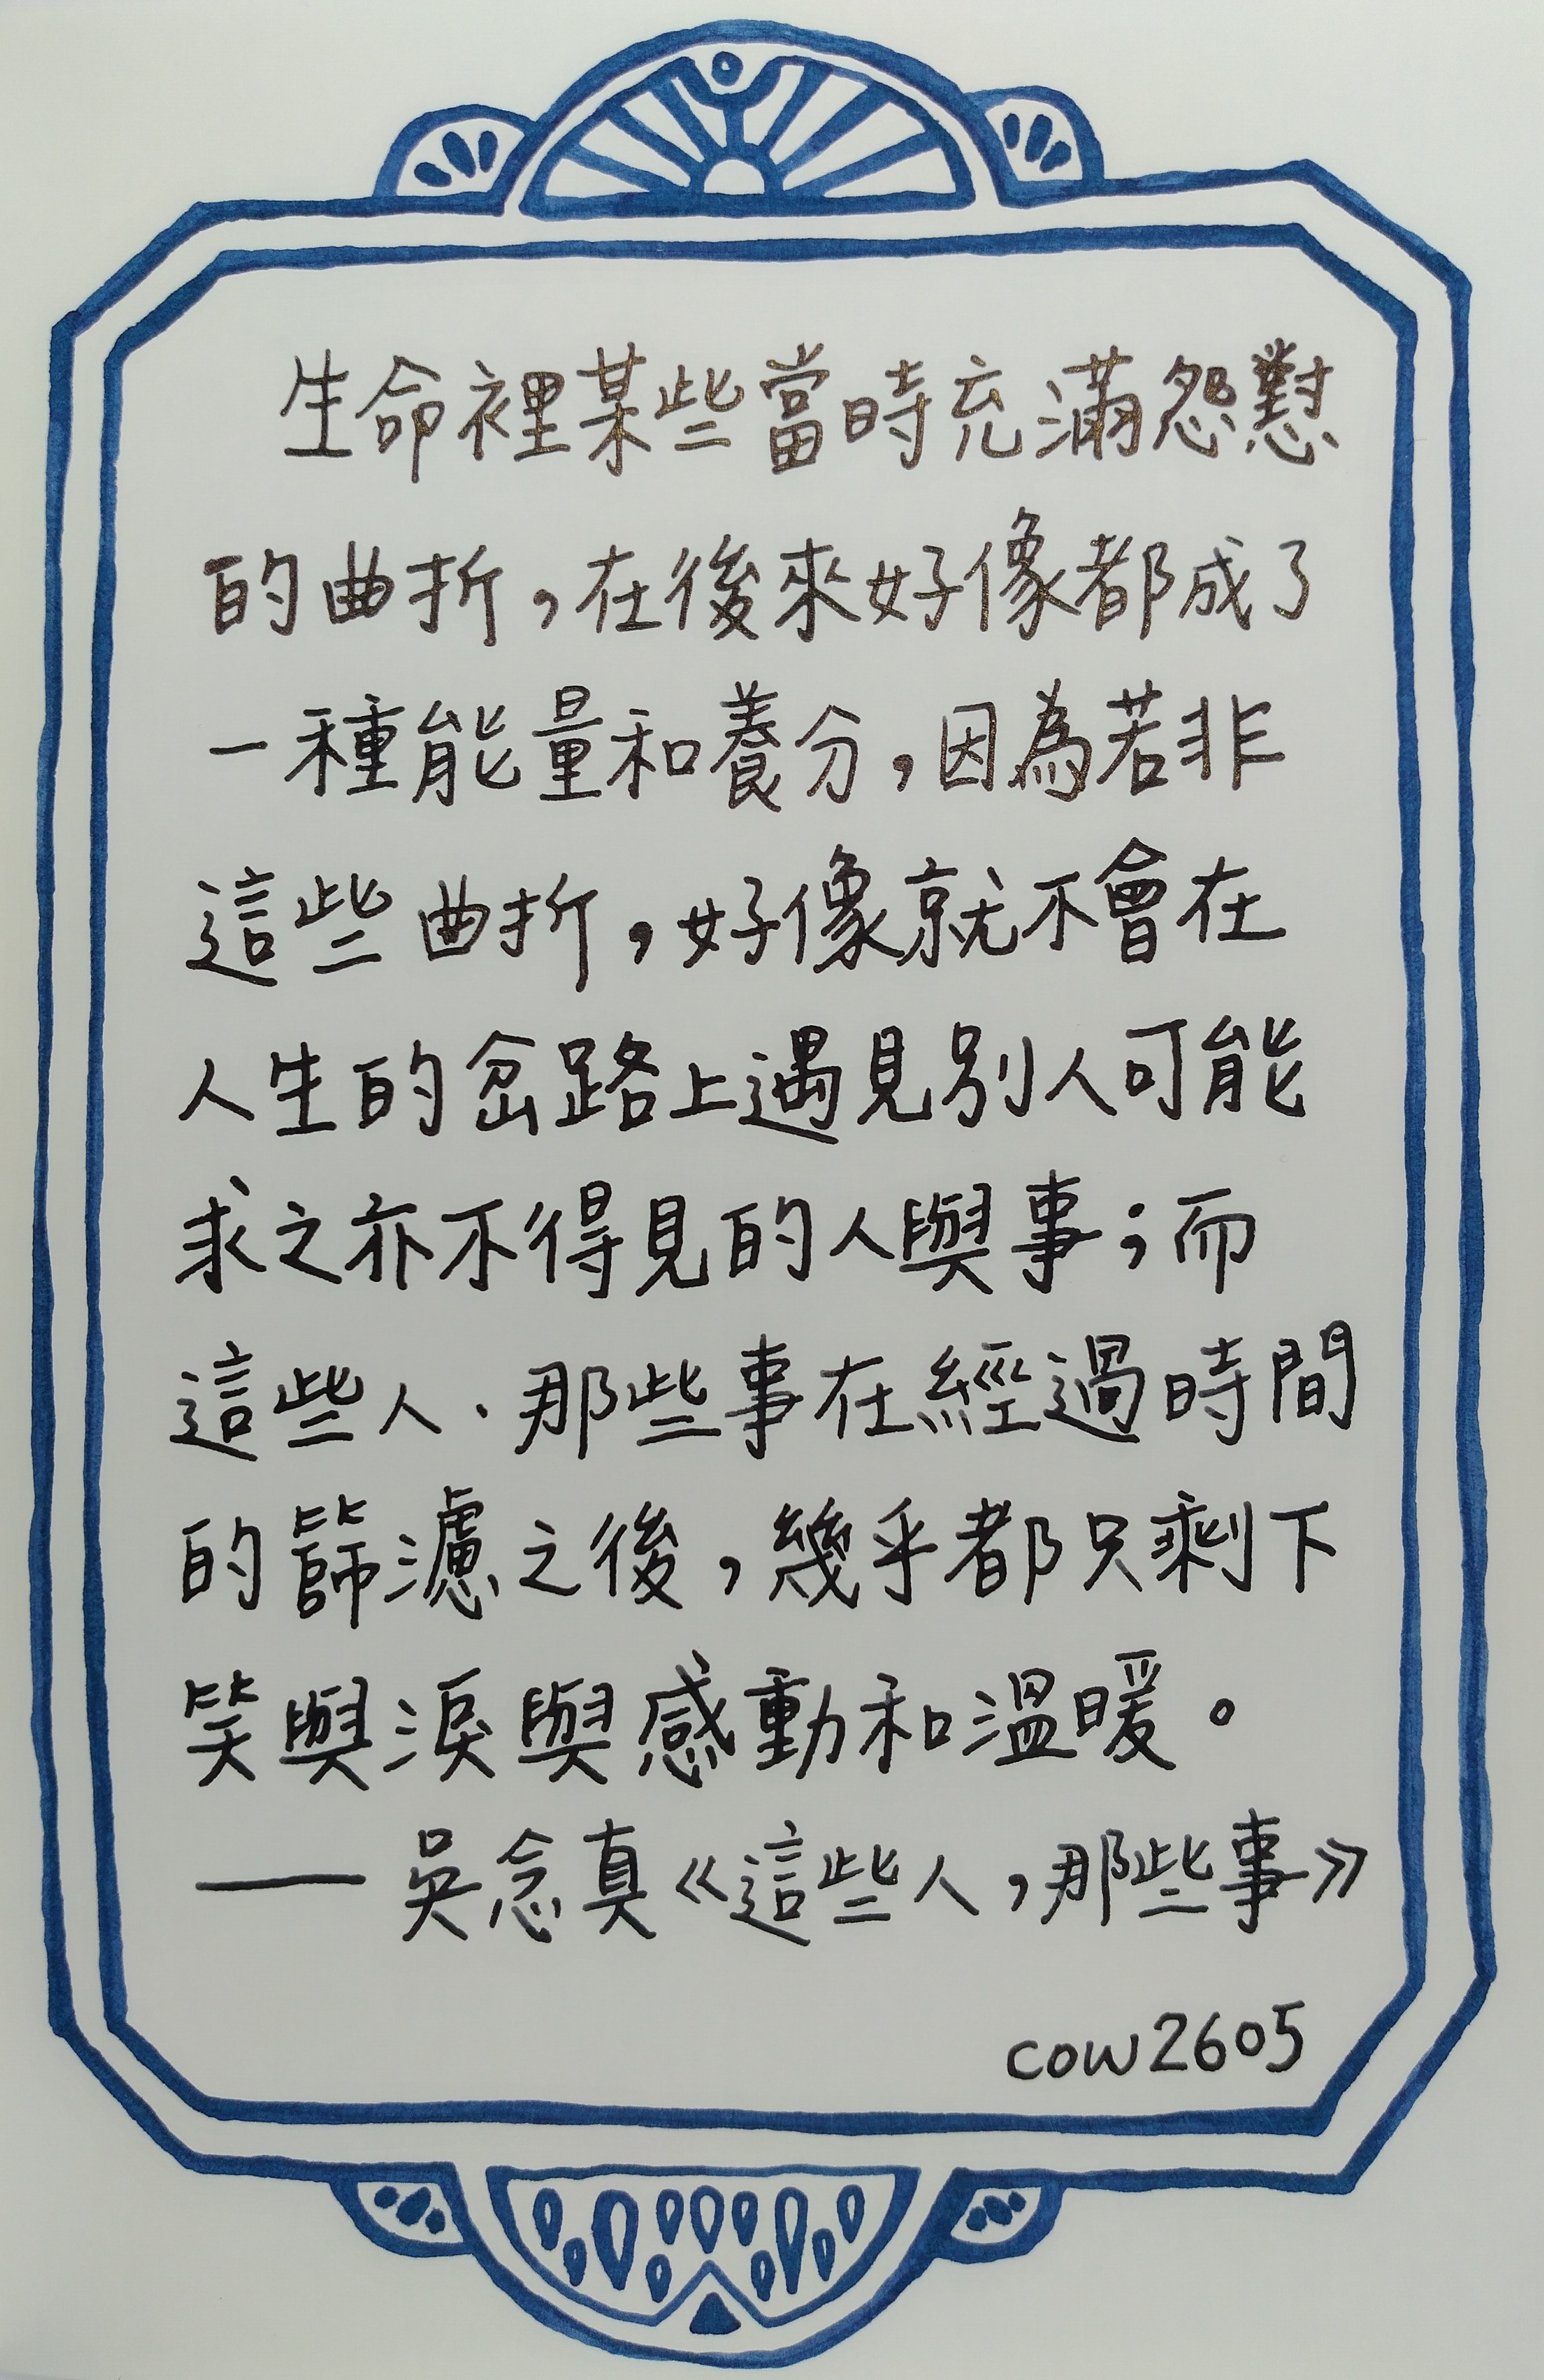 生命裡某些當時充滿怨懟
的曲折,在後來好像都成了
一種能量和養分,因為若非
這些曲折,好像就不會在
人生的岔路上遇見別人可能
求之亦不得見的人與事;而
這些人、那些事在經過時間
的篩濾之後,幾乎都只剩下
笑與淚與感動和溫暖。
——吳念真《這些人,那些事》
cow2605